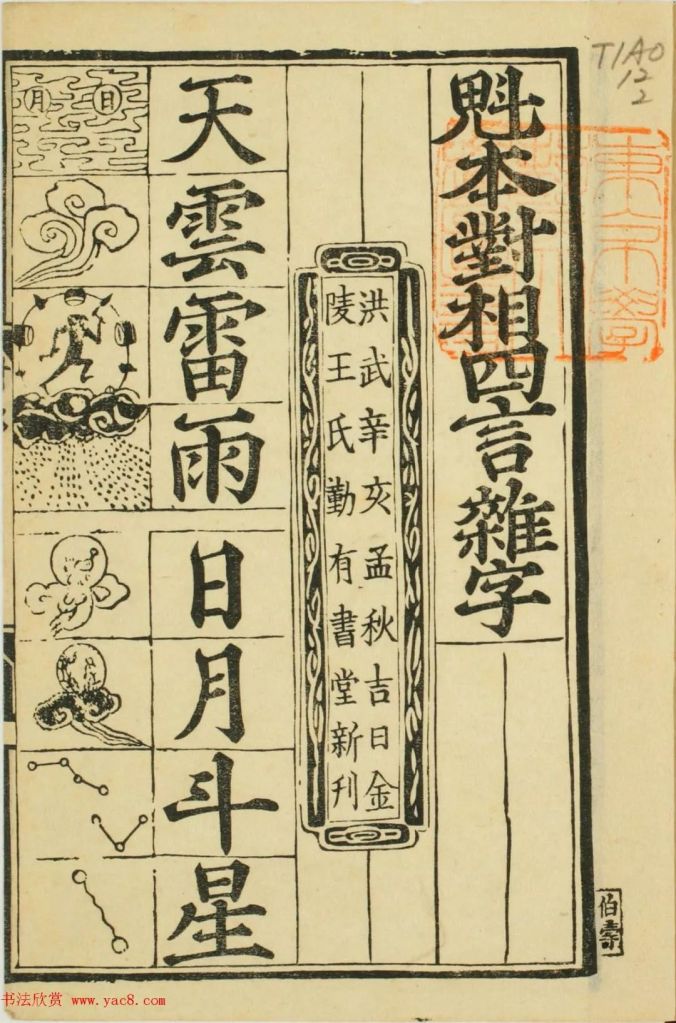 魁本對相四言雜字
洪武辛亥孟秋吉日金
陵王氏勤有書堂新刊
天雲雷雨
日月斗星
日
月
伯壽
TIAO
12
2
书法欣赏 www.yac8.com